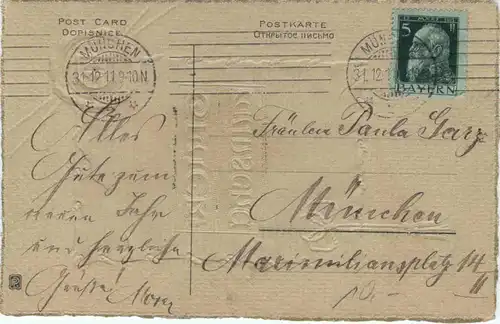 POST CARD
DOPISNICE
POSTKARTE
Открытое письмо
MÜNCHEN
31.12.11.9-10N
MÜN
31.12.1
5
BAYERN
Alles
Gute zum
neuen Jahr
und herzliche
Grüße!
Fräulein Paula
München
Maximiliansplatz 14
III
10.-